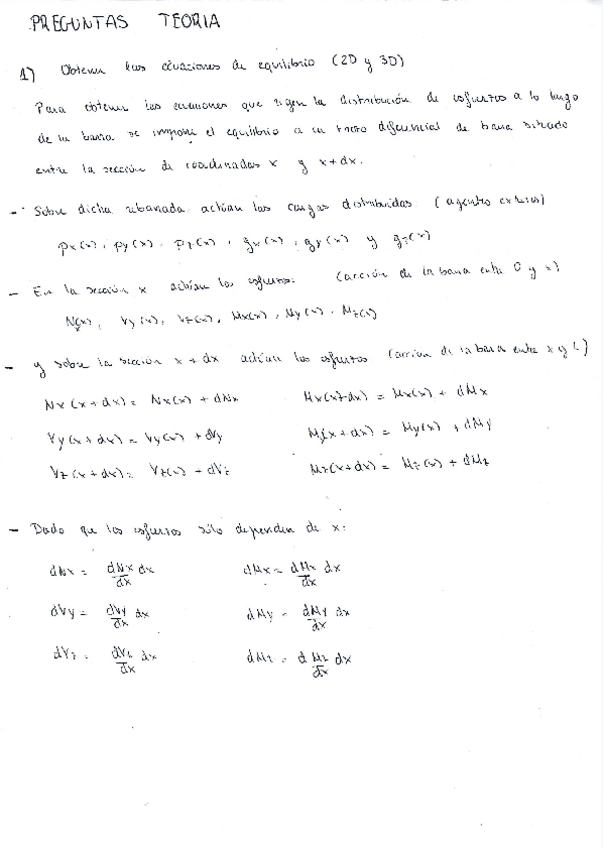 PREGUNTAS TEORIA
1) Obtener las ecuaciones de equilibrio (2D y 3D)
Para obtener las ecuaciones que rigen la distribución de esfuerzos a lo largo
de la barra se impone el equilibrio a un trozo diferencial de barra situado
entre la sección de coordenadas x y x+dx.
- Sobre dicha rebanada actúan las cargas distribuidas (agentes externos)
px(x), py(x), pz(x), qx(x), qy(x) y qz(x)
- En la sección x actúan los esfuerzos: (acción de la barra entre 0 y x)
N(x), Vy(x), Vz(x), Mx(x), My(x), Mz(x)
- y sobre la sección x + dx actúan los esfuerzos (acción de la barra entre x y L)
Nx(x+dx) = Nx(x) + dNx Mx(x+dx) = Mx(x) + dMx
Vy(x+dx) = Vy(x) + dVy M(x+dx) = My(x) + dMy
Vz(x+dx) = Vz(x) + dVz Mz(x+dx) = Mz(x) + dMz
- Dado que los esfuerzos sólo dependen de x:
dNx = dNx/dx dx dMx = dMx/dx dx
dVy = dVy/dx dx dMy = dMy/dx dx
dVz = dVz/dx dx dMz = dMz/dx dx